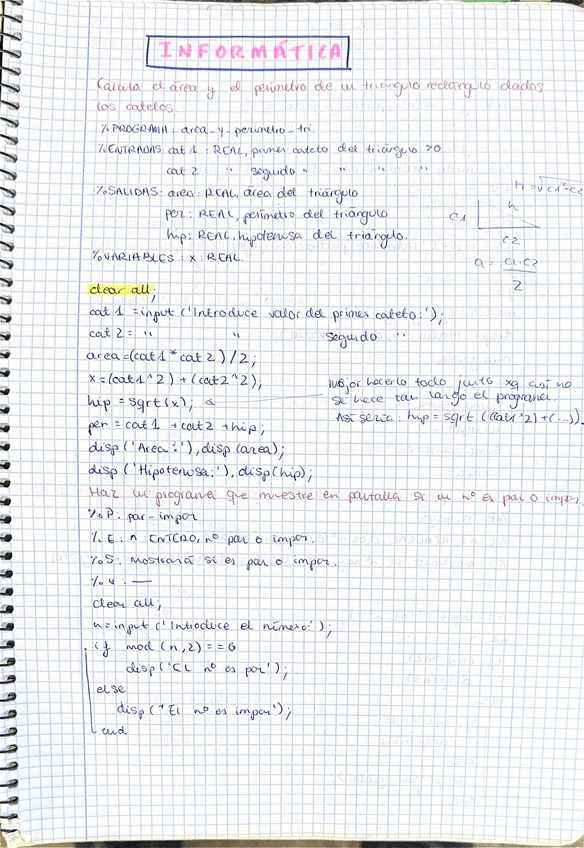 INFORMÁTICA
Calcula el área y el perímetro de un triángulo rectángulo dados
los catetos.
% PROGRAMA: area-y-perimetro-tri.
% ENTRADAS: cat 1: REAL, primer cateto del triángulo >0
cat 2 " segundo " " " "
% SALIDAS: area: REAL, área del triángulo
per: REAL, perímetro del triángulo
hip: REAL, hipotenusa del triángulo.
% VARIABLES: x: REAL.
h = √c1²+c2
h
c1
c2
a = c1·c2
2
clear all;
cat 1 = input ('Introduce valor del primer cateto:');
cat 2 = " " segundo "
area = (cat1 * cat 2) / 2;
x = (cat1^2) + (cat2^2);
hip = sqrt(x);
Mejor hacerlo todo junto xq así no
se hace tan largo el programa.
Así sería: hip = sqrt ((cat1^2)+(...)).
per = cat1 + cat2 + hip;
disp ('Area:'), disp (area);
disp ('Hipotenusa:'), disp(hip);
Haz un programa que muestre en pantalla si un nº es par o impar.
% P: par-impar
% E: n: ENTERO, nº par o impar.
% S: mostrará si es par o impar.
% V: —
clear all;
n=input ('Introduce el número:');
if mod (n,2) == 0
disp ('El nº es par');
else
disp ('El nº es impar');
end